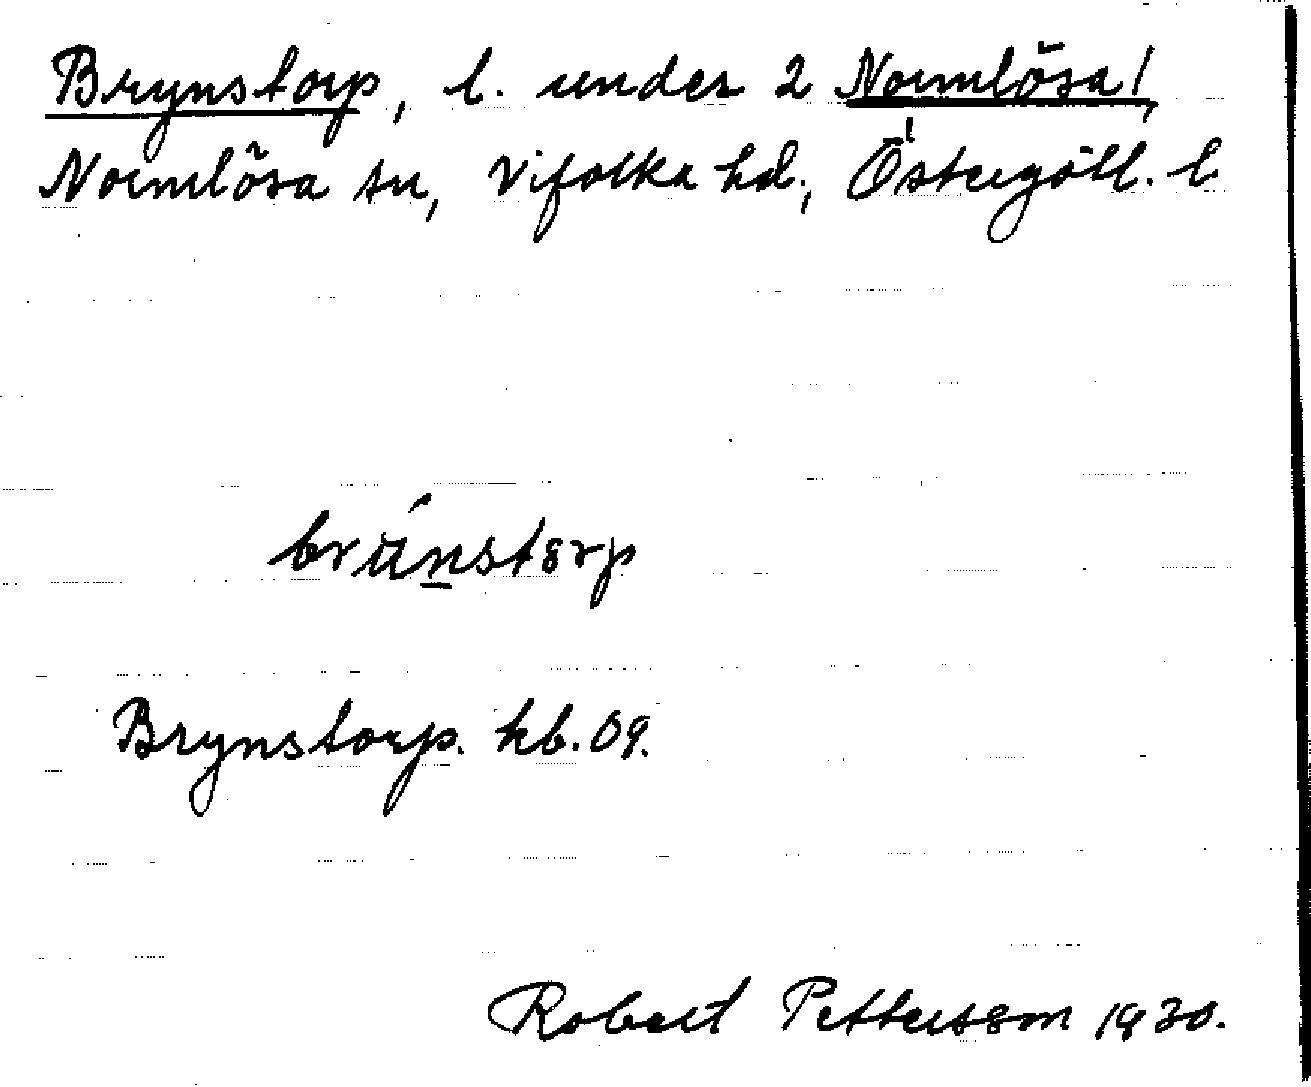 Brynstorp, l. under 2 Normlösa!,
Normlösa sn, Vifolka hd., Östergötl. l.
brünstorp
Brynstorp. kb. 09.
Robert Pettersson 1930.